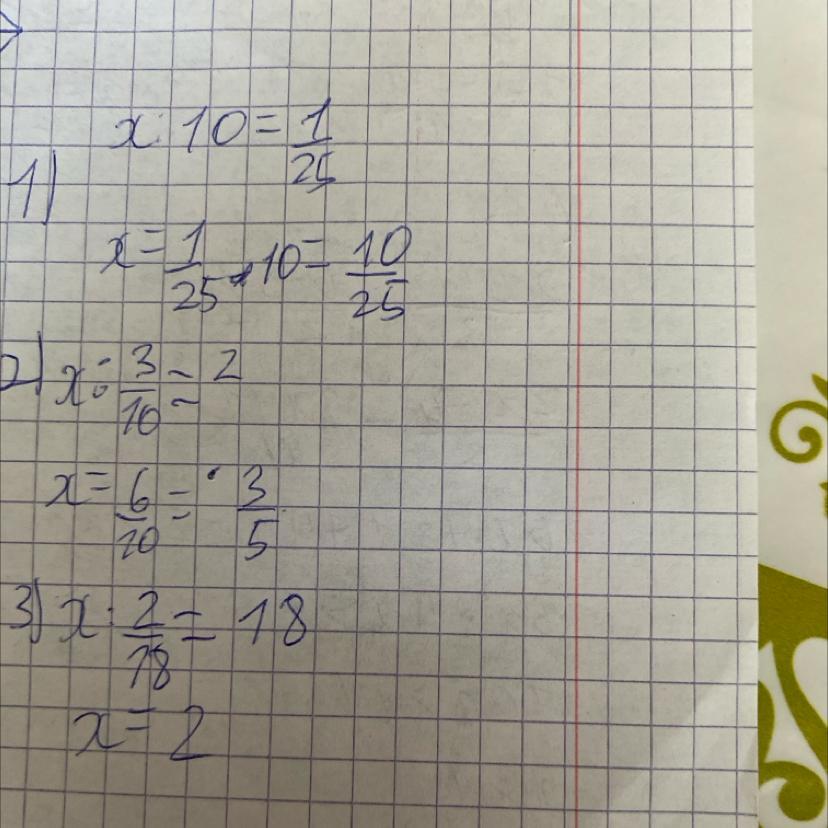 1) x : 10 = 1/25
x = 1/25 · 10 = 10/25
2) x : 3/10 = 2
x = 6/10 = 3/5
3) x : 2/18 = 18
x = 2